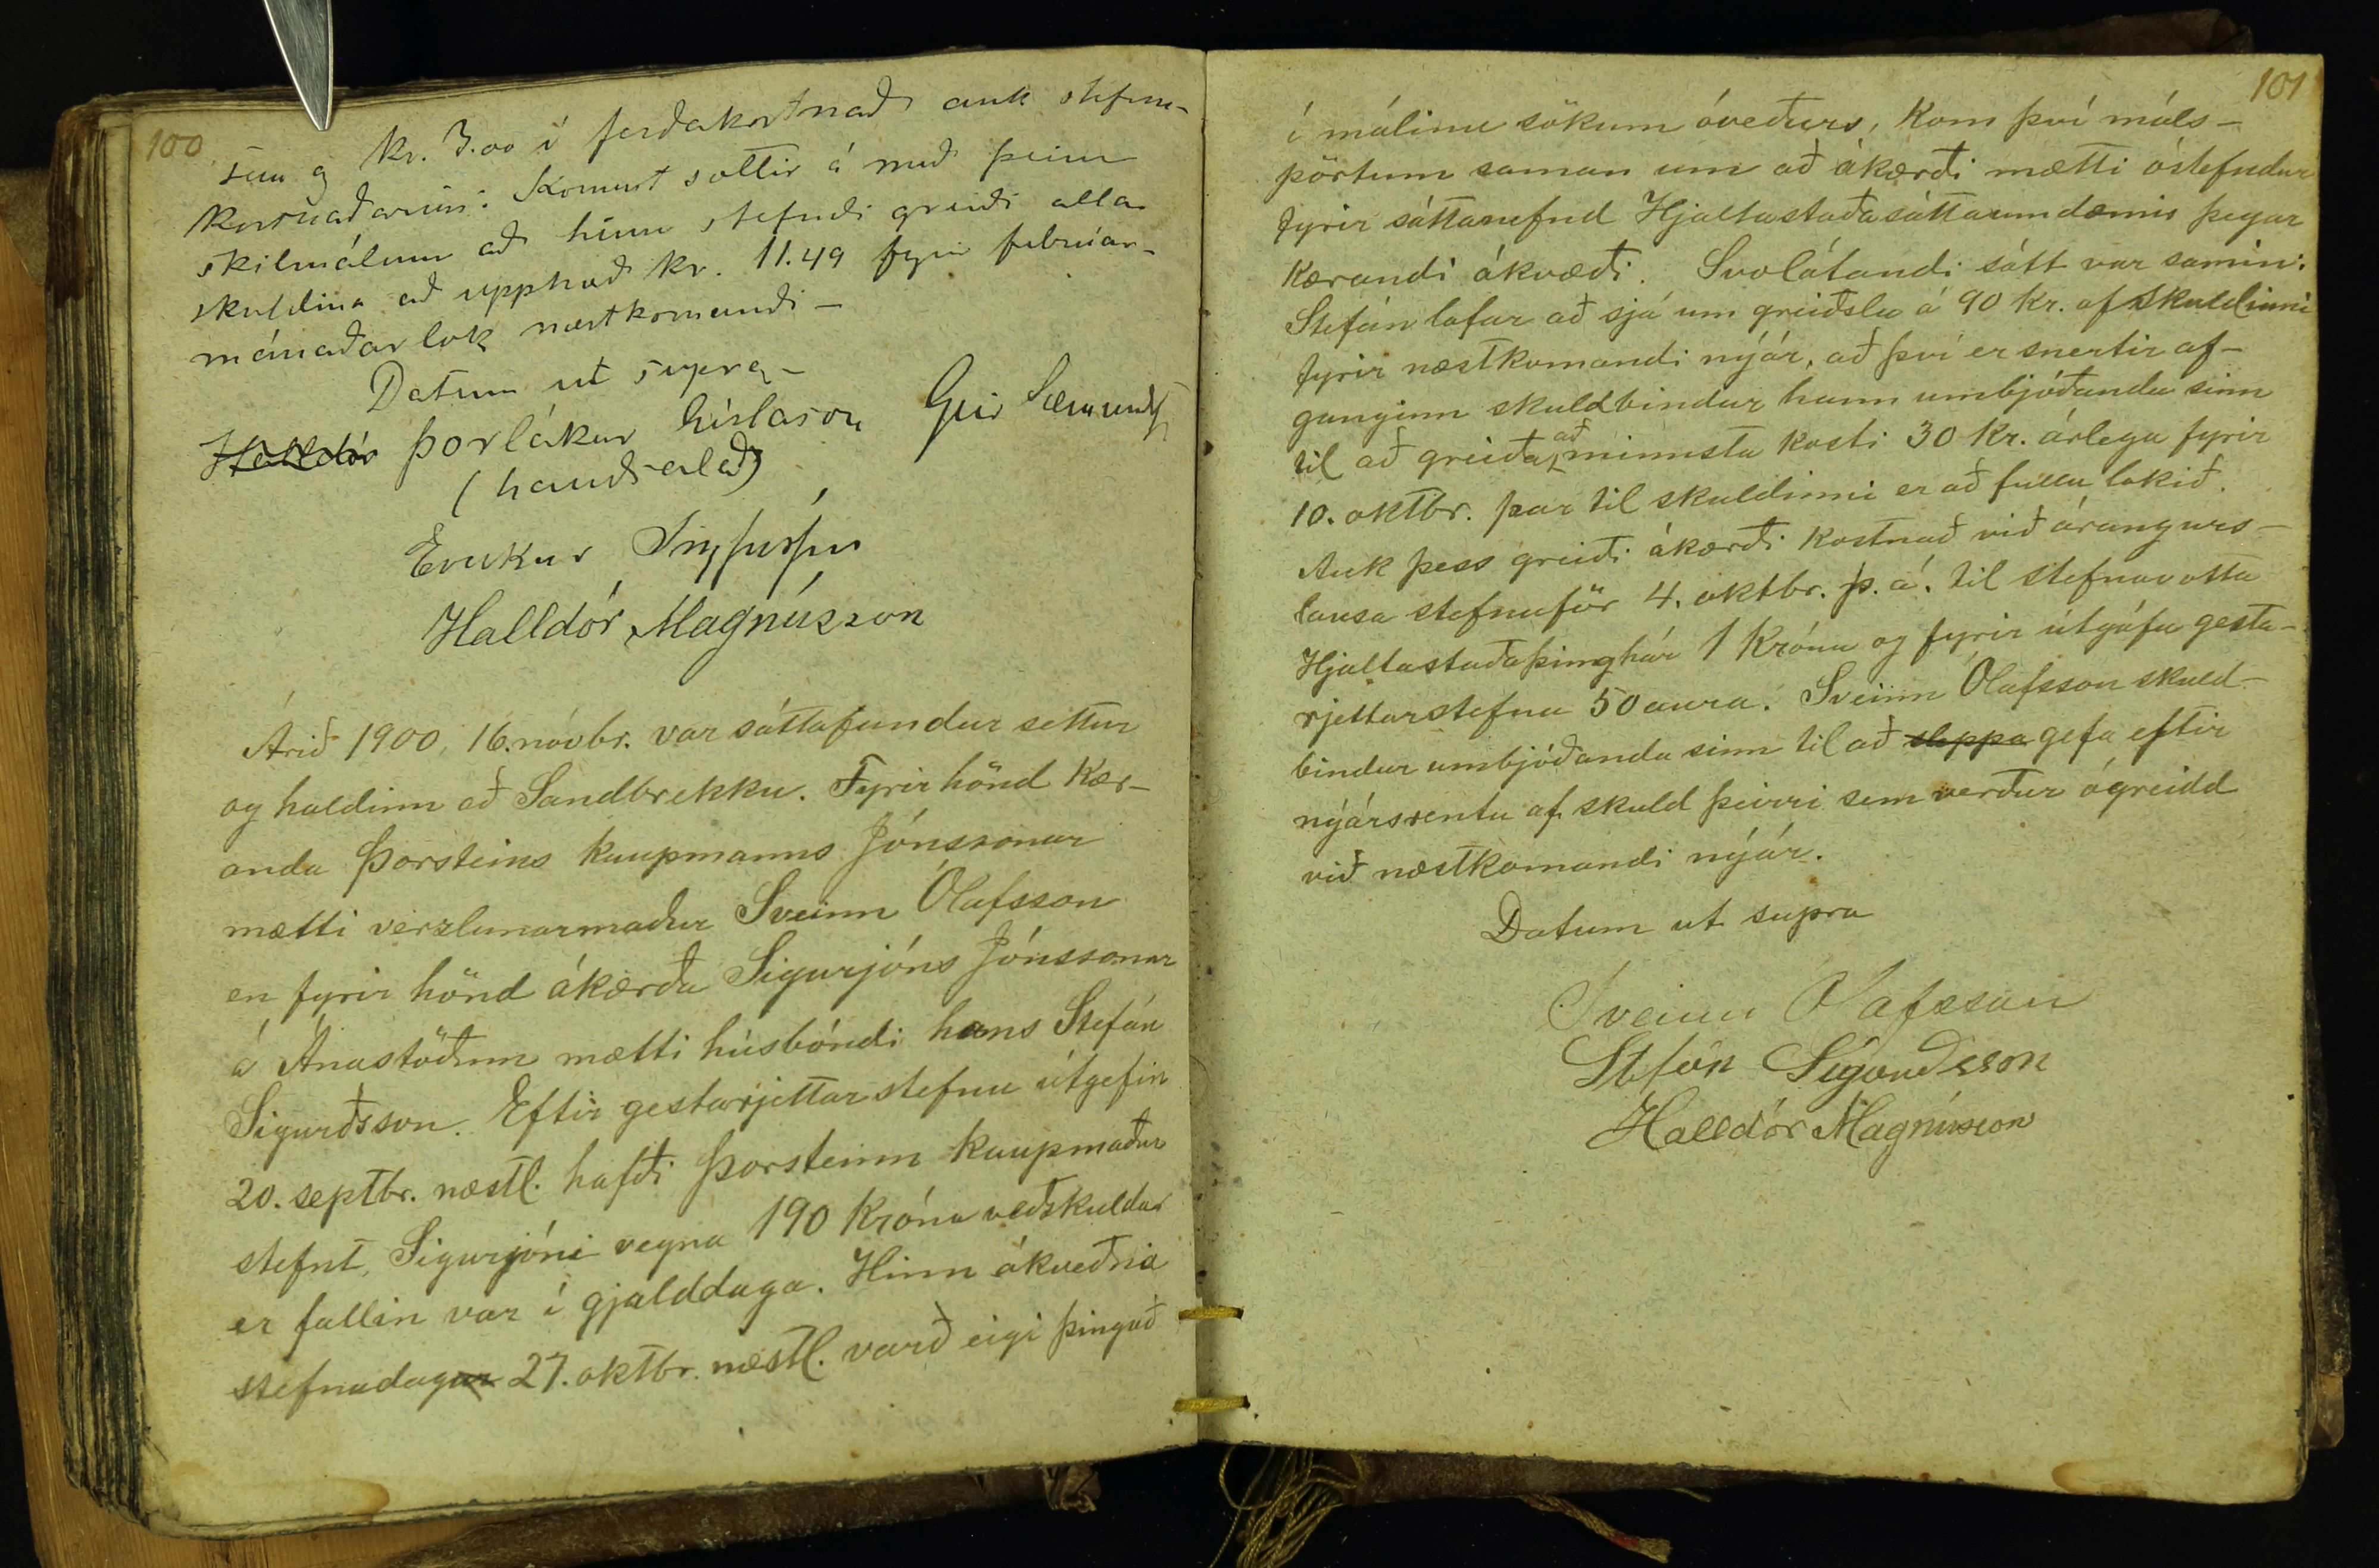 100
sem og kr. 3.00 í ferðakostnað auk stefnu-
kostnaðarins. Komust sættir á með þeim
skilmálum að hinn stefndi greiði alla
skuldina að upphæð kr. 11.49 fyrir febrúar-
mánaðarlok næstkomandi –
Datum ut supra –
Halldór Þorlákur Gíslason Geir Sæmundss
(handsalað)
Halldór Magnússon
Árið 1900, 16. nóvbr. var sáttafundur settur
og haldinn að Sandbrekku. Fyrir hönd kær-
anda Þorsteins kaupmanns Jónssonar
mætti verzlunarmaður Sveinn Ólafsson
en fyrir hönd ákærða Sigurjóns Jónssonar
á Ánastöðum mætti húsbóndi hans Stefán
Sigurðsson. Eftir gestarjettarstefnu útgefin
20. septbr. næstl. hafði Þorsteinn kaupmaður
stefnt Sigurjóni vegna 190 króna veðskuldar
er fallin var í gjalddaga. Hinn ákveðna
stefnudagur 27. oktbr. næstl. varð eigi þingað
101
í málinu sökum óveðurs, kom því máls-
pörtum saman um að ákærði mætti óstefndur
fyrir sáttanefnd Hjaltastaðasáttaumdæmis þegar
kærandi ákvæði. Svolátandi sátt var samin:
Stefán lofar að sjá um greiðslu á 90 kr. af skuldinni
fyrir næstkomandi nýár, að því er snertir af-
ganginn skuldbindur hann umbjóðanda sinn
til að greiða að minnsta kosti 30 kr. árlega fyrir
10. oktbr. þar til skuldinni er að fullu lokið.
Auk þess greiði ákærði kostnað við árangurs-
lausa stefnuför 4. oktbr. þ. á. til stefnuvotta
Hjaltastaðaþinghár 1 krónu og fyrir útgáfu gesta-
rjettarstefnu 50 aura. Sveinn Ólafsson skuld-
bindur umbjóðanda sinn til að sleppa gefa eftir
nýársrentu af skuld þeirri sem verður ógreidd
við næstkomandi nýár.
Datum ut supra
Sveinn Olafsson
Stefán Sigurðsson
Halldór Magnússon